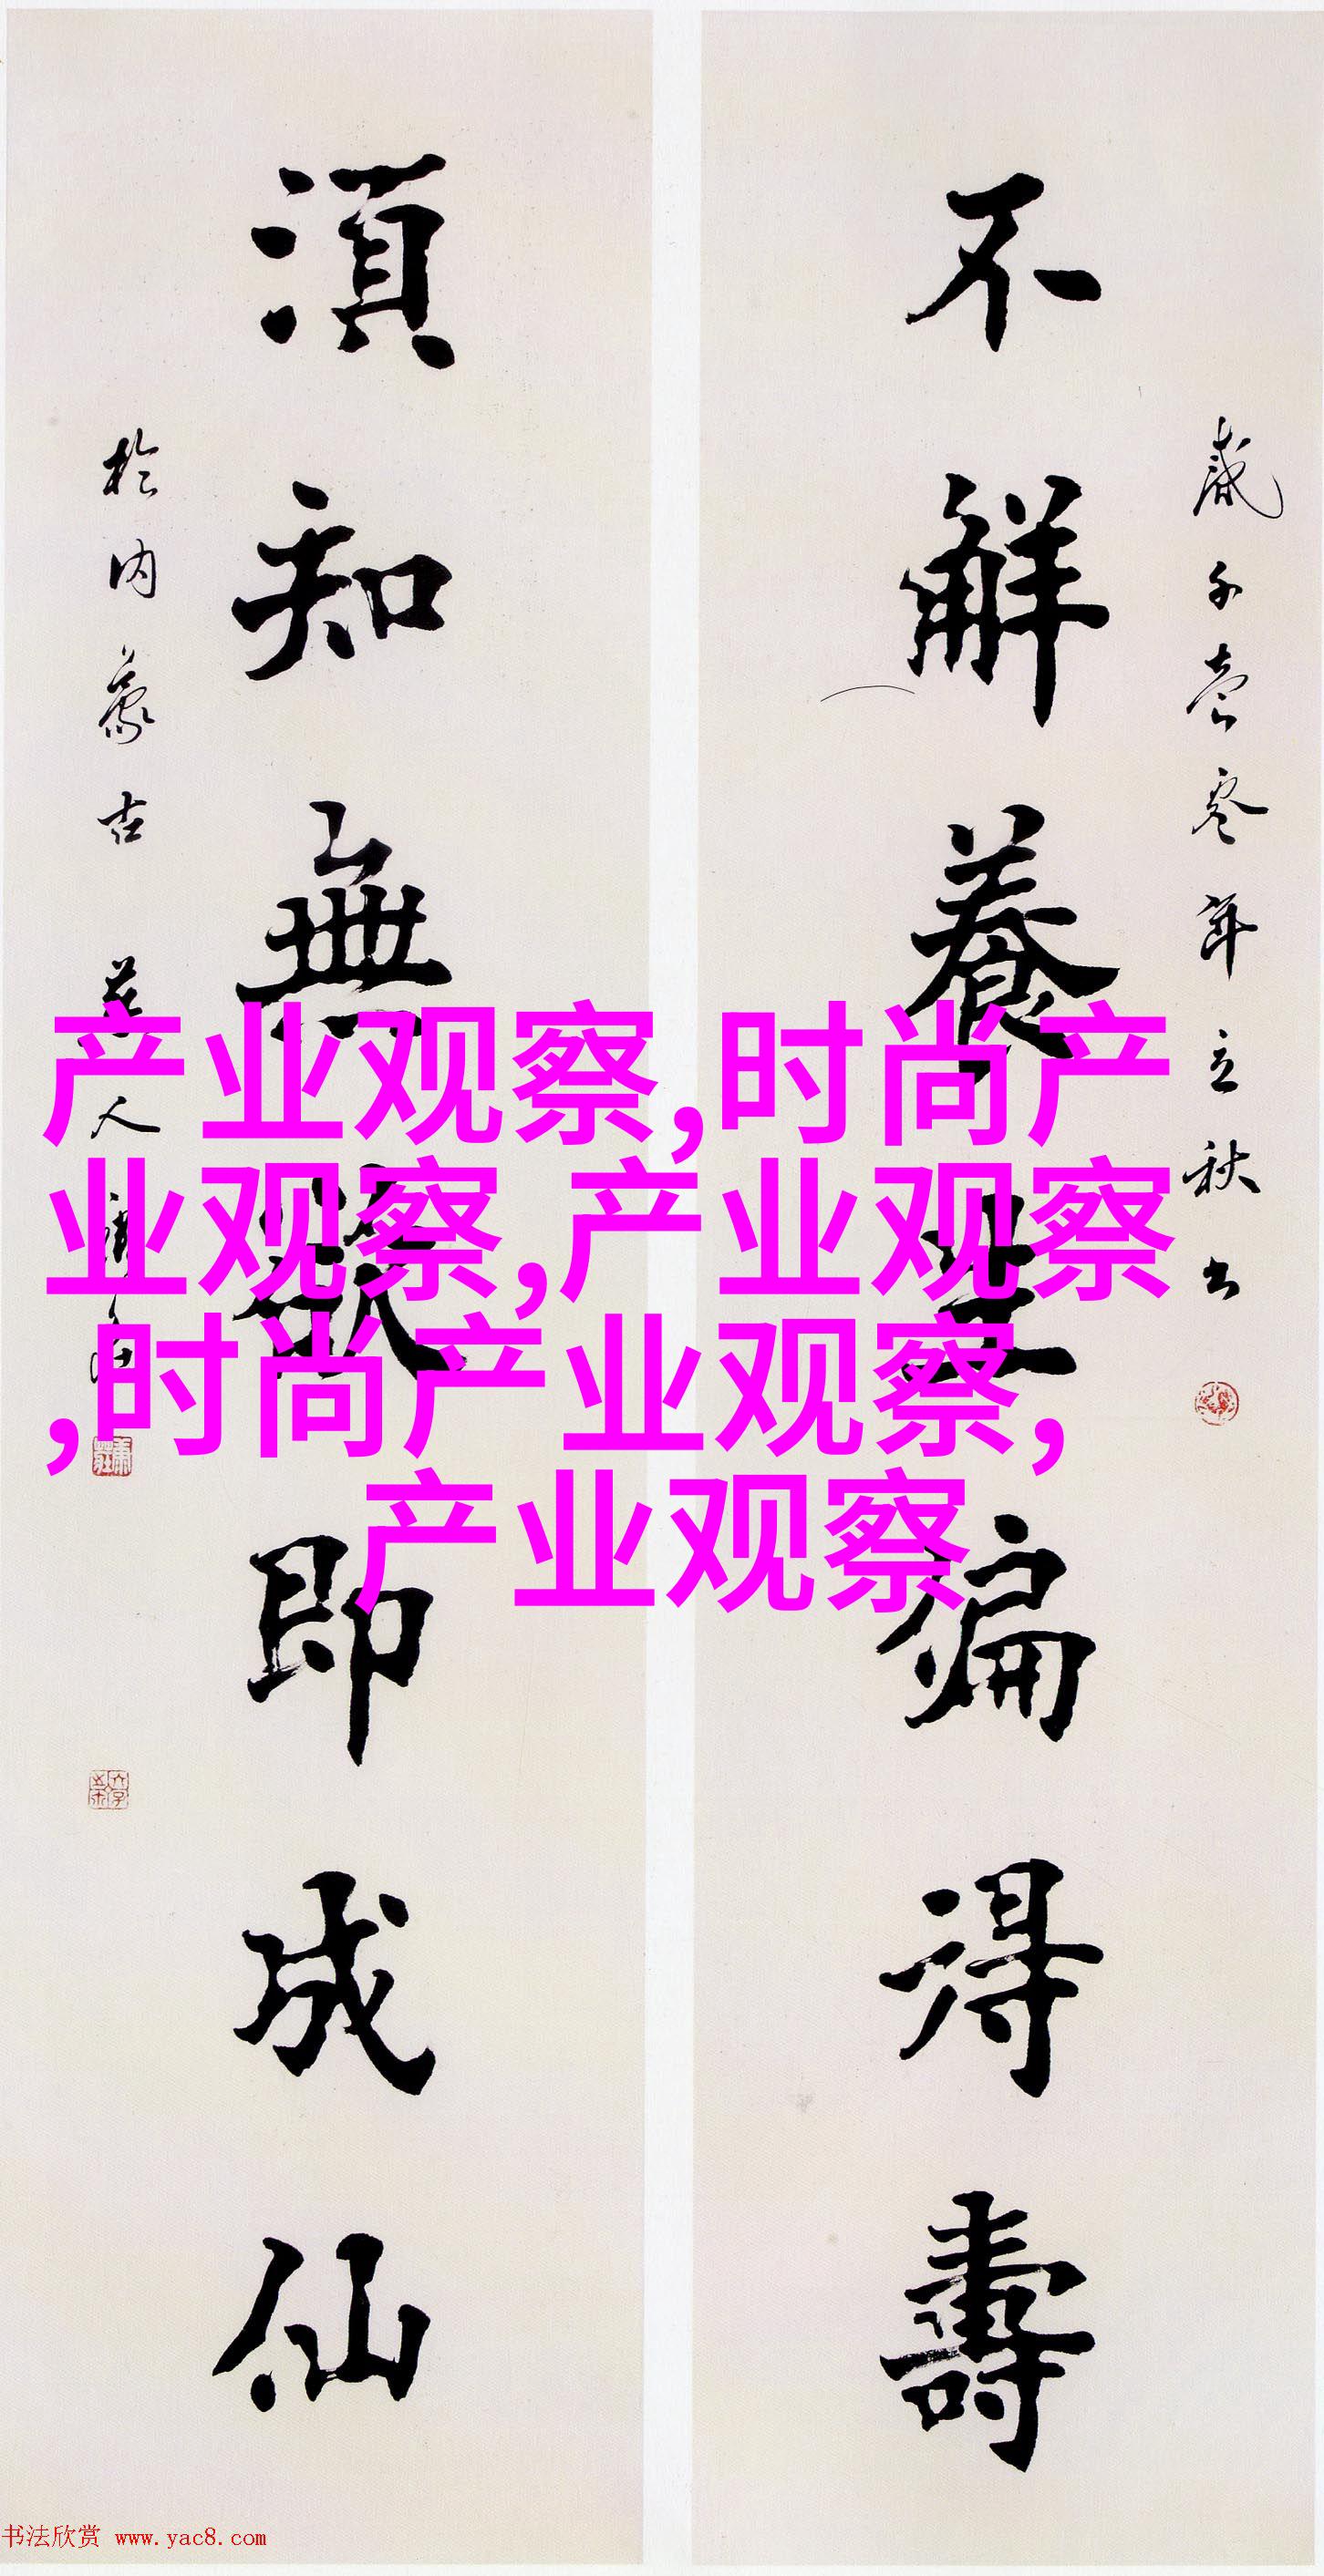 歲于壹零年立秋书
不解養生偏得壽
須知無欲即成仙
於内蒙古人
产业观察,时尚产
业观察,产业观察
,时尚产业观察,
产业观察
书法欣赏 www.yac8.com